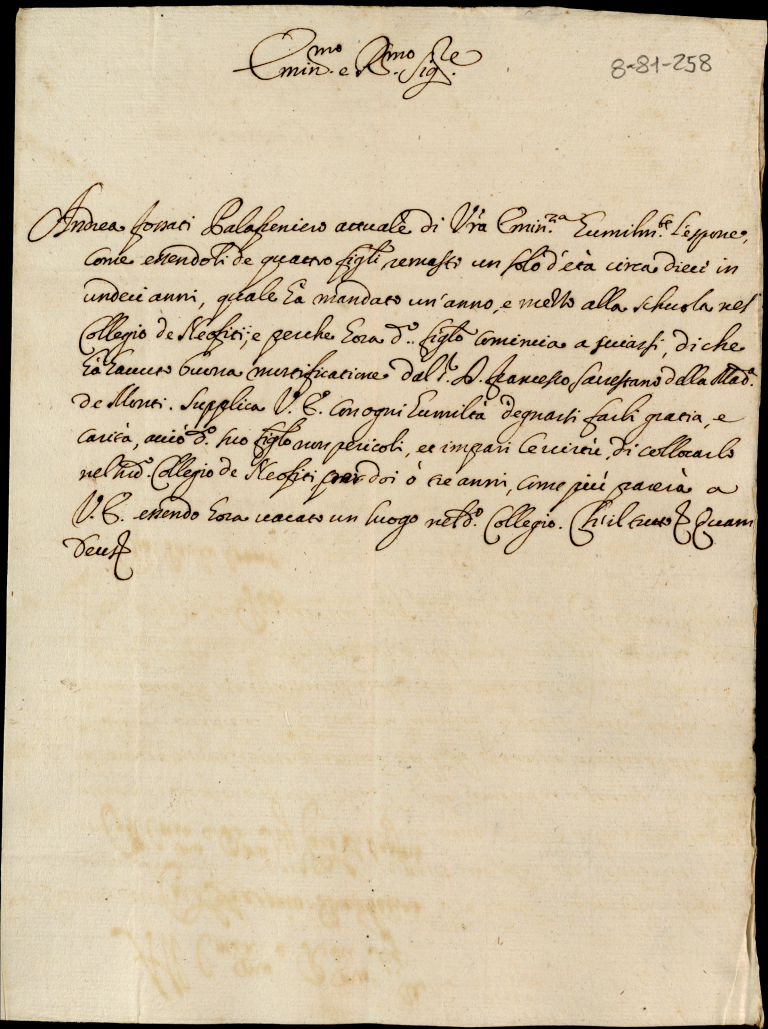 Emin.mo e R.mo Sig.re
8-81-258
Andrea Palafreniero attuale di V'ra Emin.za humilm.te l'espone,
come essendoli de quattro figli rimasti un solo d'età circa dieci in
undeci anni, quale hà mandato un'anno, e mezzo alla schuola nel
Collegio de Neofiti; e perche hora d.o figlo comincia a suiarsi, di che
hà hauuto buona mortificatione dal S. D. Francesco della Mad.a
de Monti. Supplica V. E. con ogni humiltà degnarsi farli gratia, e
carità, acciò d.o suo figlo non pericoli, et impari le uirtù, di collocarlo
nel sud.o Collegio de Neofiti per doi ò tre anni, come più parerà a
V. E. essendo hora uacato un luogo nel d.o Collegio. Ch'il tutto Quam
Deus